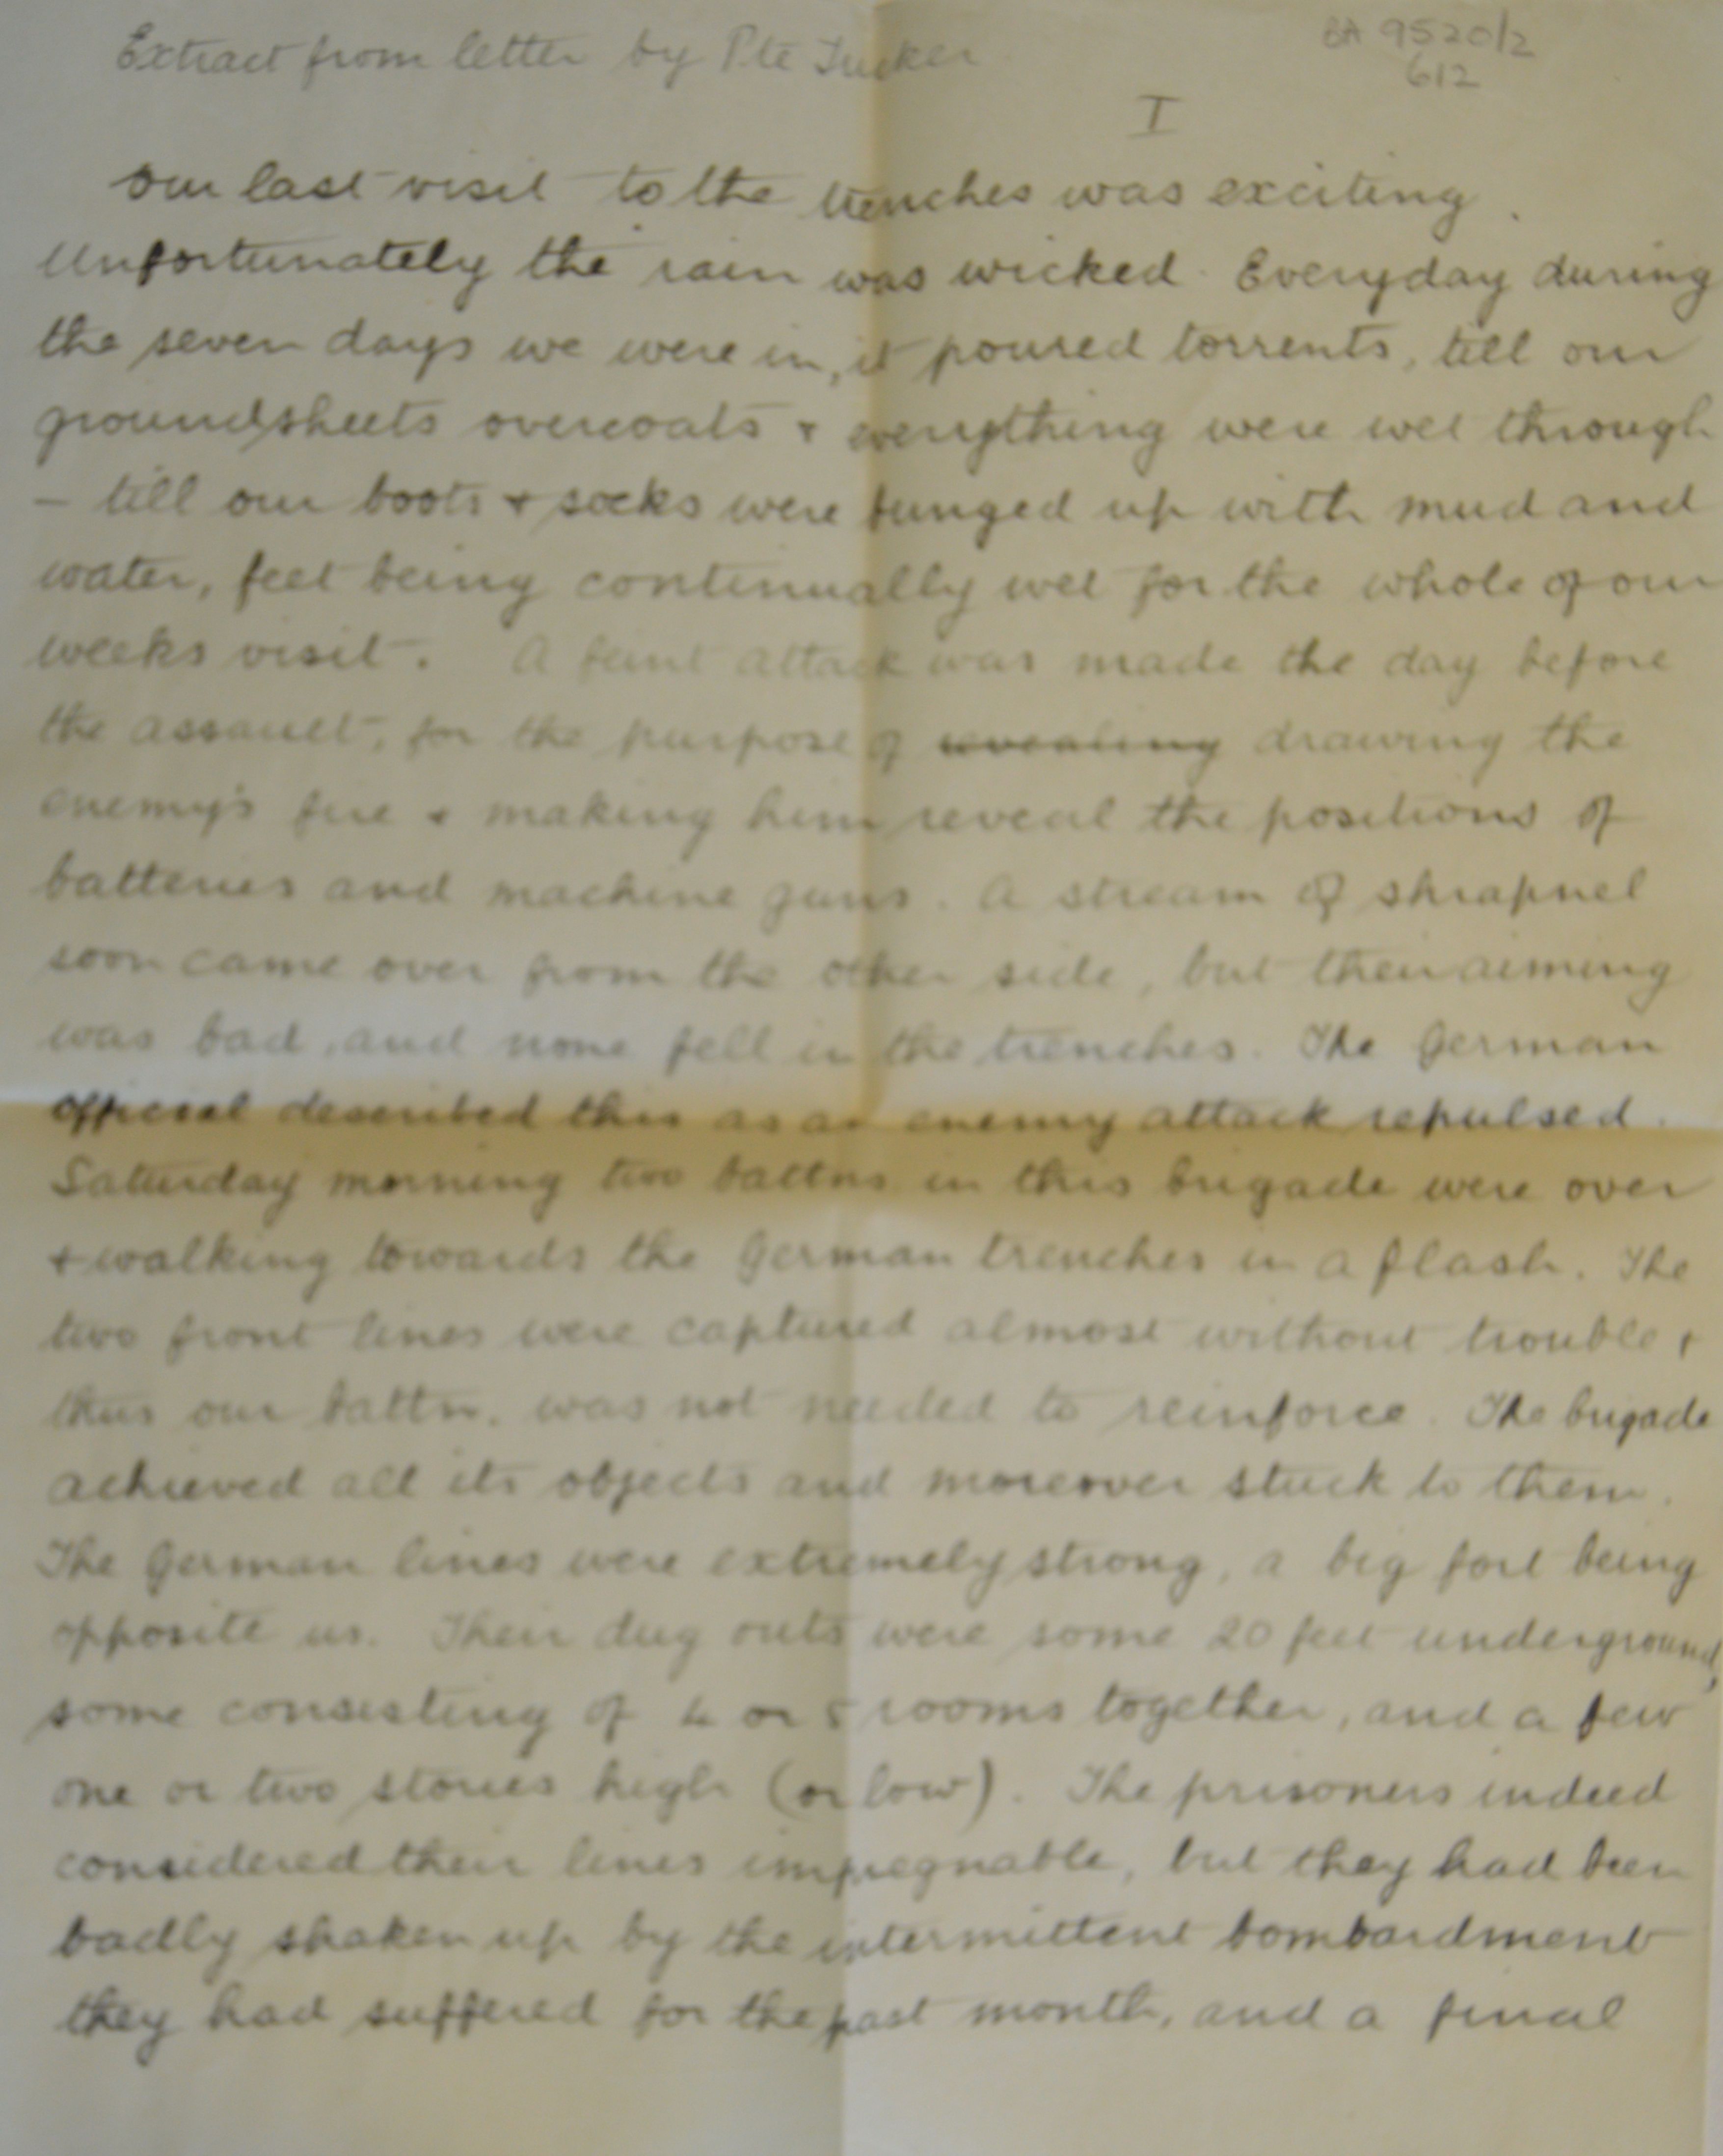 Extract from letter by Pte Tucker
BA 9520/2
612
I
Our last visit to the trenches was exciting.
Unfortunately the rain was wicked. Everyday during
the seven days we were in, it poured torrents, till our
groundsheets overcoats & everything were wet through
– till our boots & socks were bunged up with mud and
water, feet being continually wet for the whole of our
weeks visit. A feint attack was made the day before
the assault, for the purpose of revealing drawing the
enemy's fire & making him reveal the positions of
batteries and machine guns. A stream of shrapnel
soon came over from the other side, but their aiming
was bad, and none fell in the trenches. The German
official described this as an enemy attack repulsed.
Saturday morning two battns in this brigade were over
& walking towards the German trenches in a flash. The
two front lines were captured almost without trouble &
thus our battn. was not needed to reinforce. The brigade
achieved all its objects and moreover stuck to them.
The German lines were extremely strong, a big fort being
opposite us. Their dug outs were some 20 feet underground,
some consisting of 4 or 5 rooms together, and a few
one or two stories high (or low). The prisoners indeed
considered their lines impregnable, but they had been
badly shaken up by the intermittent bombardment
they had suffered for the past month, and a final